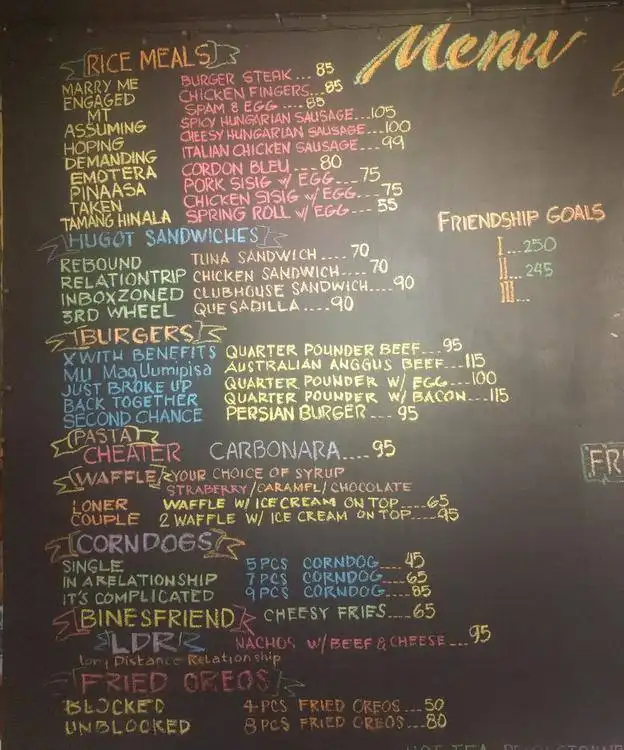 Menu
RICE MEALS
MARRY ME BURGER STEAK... 85
ENGAGED CHICKEN FINGERS...85
MT SPAM & EGG ---- 85
ASSUMING SPICY HUNGARIAN SAUSAGE...105
HOPING CHEESY HUNGARIAN SAUSAGE....100
DEMANDING ITALIAN CHICKEN SAUSAGE .... 99
EMOTERA CORDON BLEU .... 80
PINAASA PORK SISIG w/ EGG....75
TAKEN CHICKEN SISIG w/ EGG....75
TAMANG HINALA SPRING ROLL w/ EGG.... 55
FRIENDSHIP GOALS
I....250
II.... 245
III...
HUGOT SANDWICHES
REBOUND TUNA SANDWICH..... 70
RELATIONTRIP CHICKEN SANDWICH..... 70
INBOXZONED CLUBHOUSE SANDWICH....90
3RD WHEEL QUESADILLA .... 90
BURGERS
X WITH BENEFITS QUARTER POUNDER BEEF.... 95
MU MagUumipisa AUSTRALIAN ANGGUS BEEF....115
JUST BROKE UP QUARTER POUNDER W/ EGG....100
BACK TOGETHER QUARTER POUNDER W/ BACON....115
SECOND CHANCE PERSIAN BURGER ---- 95
PASTA
CHEATER CARBONARA..... 95
WAFFLE YOUR CHOICE OF SYRUP
STRABERRY/CARAMEL/CHOCOLATE
LONER WAFFLE W/ ICE CREAM ON TOP.....65
COUPLE 2 WAFFLE W/ ICE CREAM ON TOP.....95
CORNDOGS
SINGLE 5 PCS CORNDOG.... 45
IN A RELATIONSHIP 7 PCS CORNDOG.... 65
IT'S COMPLICATED 9 PCS CORNDOG.... 85
BINESFRIEND CHEESY FRIES.... 65
LDR NACHOS W/ BEEF & CHEESE... 95
Long Distance Relationship
FRIED OREOS
BLOCKED 4 PCS FRIED OREOS ....50
UNBLOCKED 8 PCS FRIED OREOS ....80